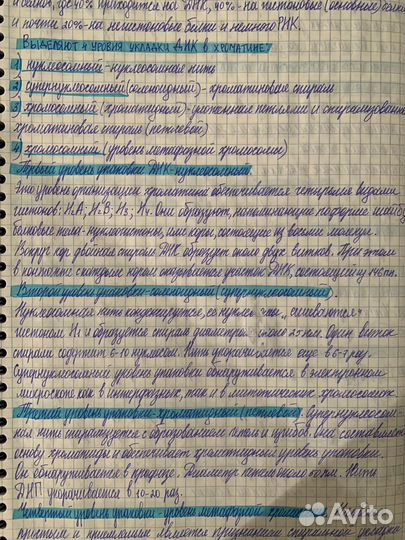 белки, где 40% приходится на ДНК, 40% - на гистоновые (основные) белки
и почти 20% - на негистоновые белки и немного РНК.
Выделяют 4 уровня укладки ДНК в хроматине:
1) нуклеосомный - нуклеосомная нить
2) супернуклеосомный (соленоидный) - хроматиновая спираль
3) хромосомный (хроматидный) - уложенная петлями и спирализованная
хроматиновая спираль (петлевой)
4) хромосомный (уровень метафазной хромосомы)
Первый уровень упаковки ДНК - нуклеосомный.
Это уровень организации хроматина обеспечивается четырьмя видами
гистонов: H2A; H2B; H3; H4. Они образуют, напоминающие по форме шайбу
белковые тела - нуклеосомы, или коры, состоящие из восьми молекул.
Вокруг кор двойная спираль ДНК образует около двух витков. При этом
в контакте с каждым кором оказывается участок ДНК, состоящий из 146 пн.
Второй уровень упаковки - соленоидный (супернуклеосомный).
Нуклеосомная нить конденсируется, её нуклеосомы "сшиваются"
гистоном H1 и образуется спираль диаметром около 25 нм. Один виток
спирали содержит 6-10 нуклеосом. Нить укорачивается ещё в 6-7 раз.
Супернуклеосомный уровень упаковки обнаруживается в электронном
микроскопе как в интерфазных, так и в митотических хромосомах.
Третий уровень упаковки - хроматидный (петлевой). Супернуклеосом-
ная нить спирализуется с образованием петель и изгибов. Она составляет
основу хроматиды и обеспечивает хроматидный уровень упаковки.
Он обнаруживается в профазе. Диаметр петель около 50 нм. Нить
ДНП укорачивается в 10-20 раз.
Четвёртый уровень упаковки - уровень метафазной хромосомы
Avito